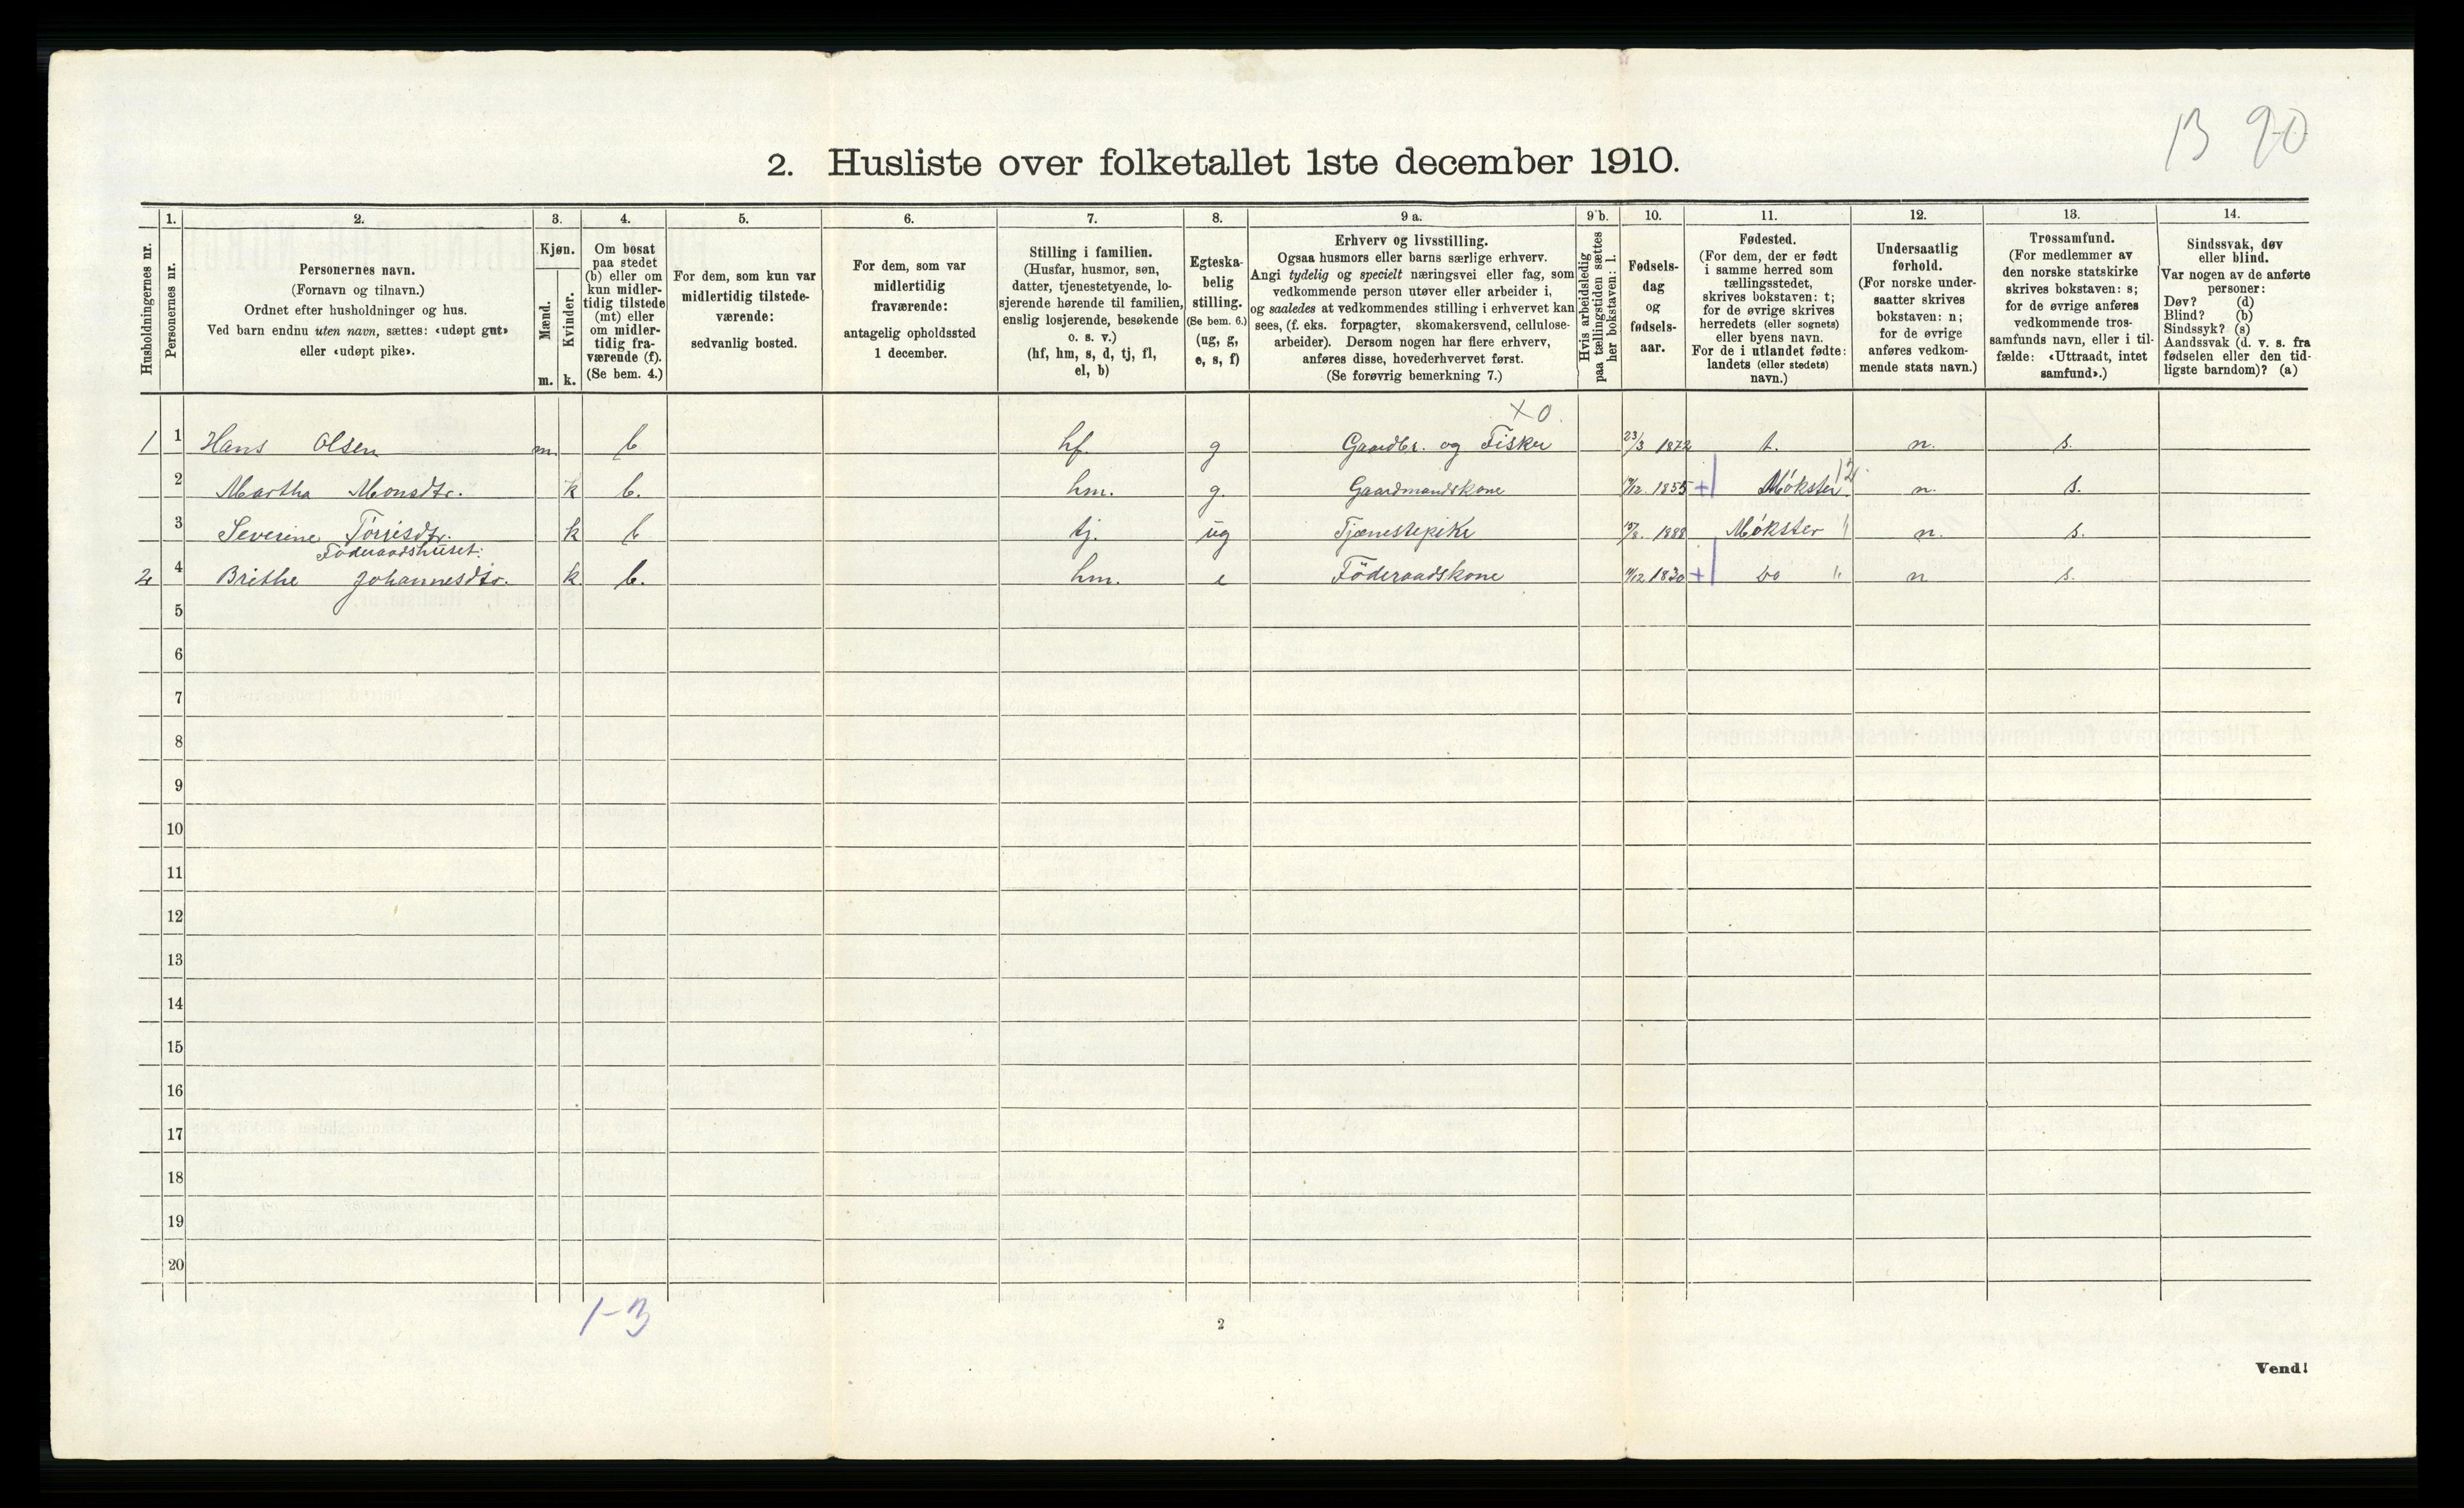 13 90
2. Husliste over folketallet 1ste december 1910.
Husholdningernes nr.
1.
Personernes nr.
2.
Personernes navn.
(Fornavn og tilnavn.)
Ordnet efter husholdninger og hus.
Ved barn endnu uten navn, sættes: «udøpt gut»
eller «udøpt pike».
3.
Kjøn.
Mænd.
Kvinder.
m. k.
4.
Om bosat
paa stedet
(b) eller om
kun midler-
tidig tilstede
(mt) eller
om midler-
tidig fra-
værende (f).
(Se bem. 4.)
5.
For dem, som kun var
midlertidig tilstede-
værende:
sedvanlig bosted.
6.
For dem, som var
midlertidig
fraværende:
antagelig opholdssted
1 december.
7.
Stilling i familien.
(Husfar, husmor, søn,
datter, tjenestetyende, lo-
sjerende hørende til familien,
enslig losjerende, besøkende
o. s. v.)
(hf, hm, s, d, tj, fl,
el, b)
8.
Egteska-
belig
stilling.
(Se bem. 6.)
(ug, g,
e, s, f)
9 a.
Erhverv og livsstilling.
Ogsaa husmors eller barns særlige erhverv.
Angi tydelig og specielt næringsvei eller fag, som
vedkommende person utøver eller arbeider i,
og saaledes at vedkommendes stilling i erhvervet kan
sees, (f. eks. forpagter, skomakersvend, cellulose-
arbeider). Dersom nogen har flere erhverv,
anføres disse, hovederhvervet først.
(Se forøvrig bemerkning 7.)
9 b.
Hvis arbeidsledig
paa tællingstiden sættes
her bokstaven: l.
10.
Fødsels-
dag
og
fødsels-
aar.
11.
Fødested.
(For dem, der er født
i samme herred som
tællingsstedet,
skrives bokstaven: t;
for de øvrige skrives
herredets (eller sognets)
eller byens navn.
For de i utlandet fødte:
landets (eller stedets)
navn.)
12.
Undersaatlig
forhold.
(For norske under-
saatter skrives
bokstaven: n;
for de øvrige
anføres vedkom-
mende stats navn.)
13.
Trossamfund.
(For medlemmer av
den norske statskirke
skrives bokstaven: s;
for de øvrige anføres
vedkommende tros-
samfunds navn, eller i til-
fælde: «Uttraadt, intet
samfund».)
14.
Sindssvak, døv
eller blind.
Var nogen av de anførte
personer:
Døv? (d)
Blind? (b)
Sindssyk? (s)
Aandssvak (d. v. s. fra
fødselen eller den tid-
ligste barndom)? (a)
x 0.
1 1 Hans Olsen m. b hf. g Gaardbr. og Fisker 23/3 1872 t. n. s.
2 Martha Monsdtr. k b. hm. g. Gaardmandskone 1855 + Møkster 12 n. s.
3 Severine Tørrisdtr. k b tj. ug Tjenestepike 1888 Møkster " n. s.
Föderaadshuset:
2 4 Brithe Johannesdtr. k b. hm. e Föderaadskone 1830 + do " n s.
5
6
7
8
9
10
11
12
13
14
15
16
17
18
19
20
1-3
2
Vend!